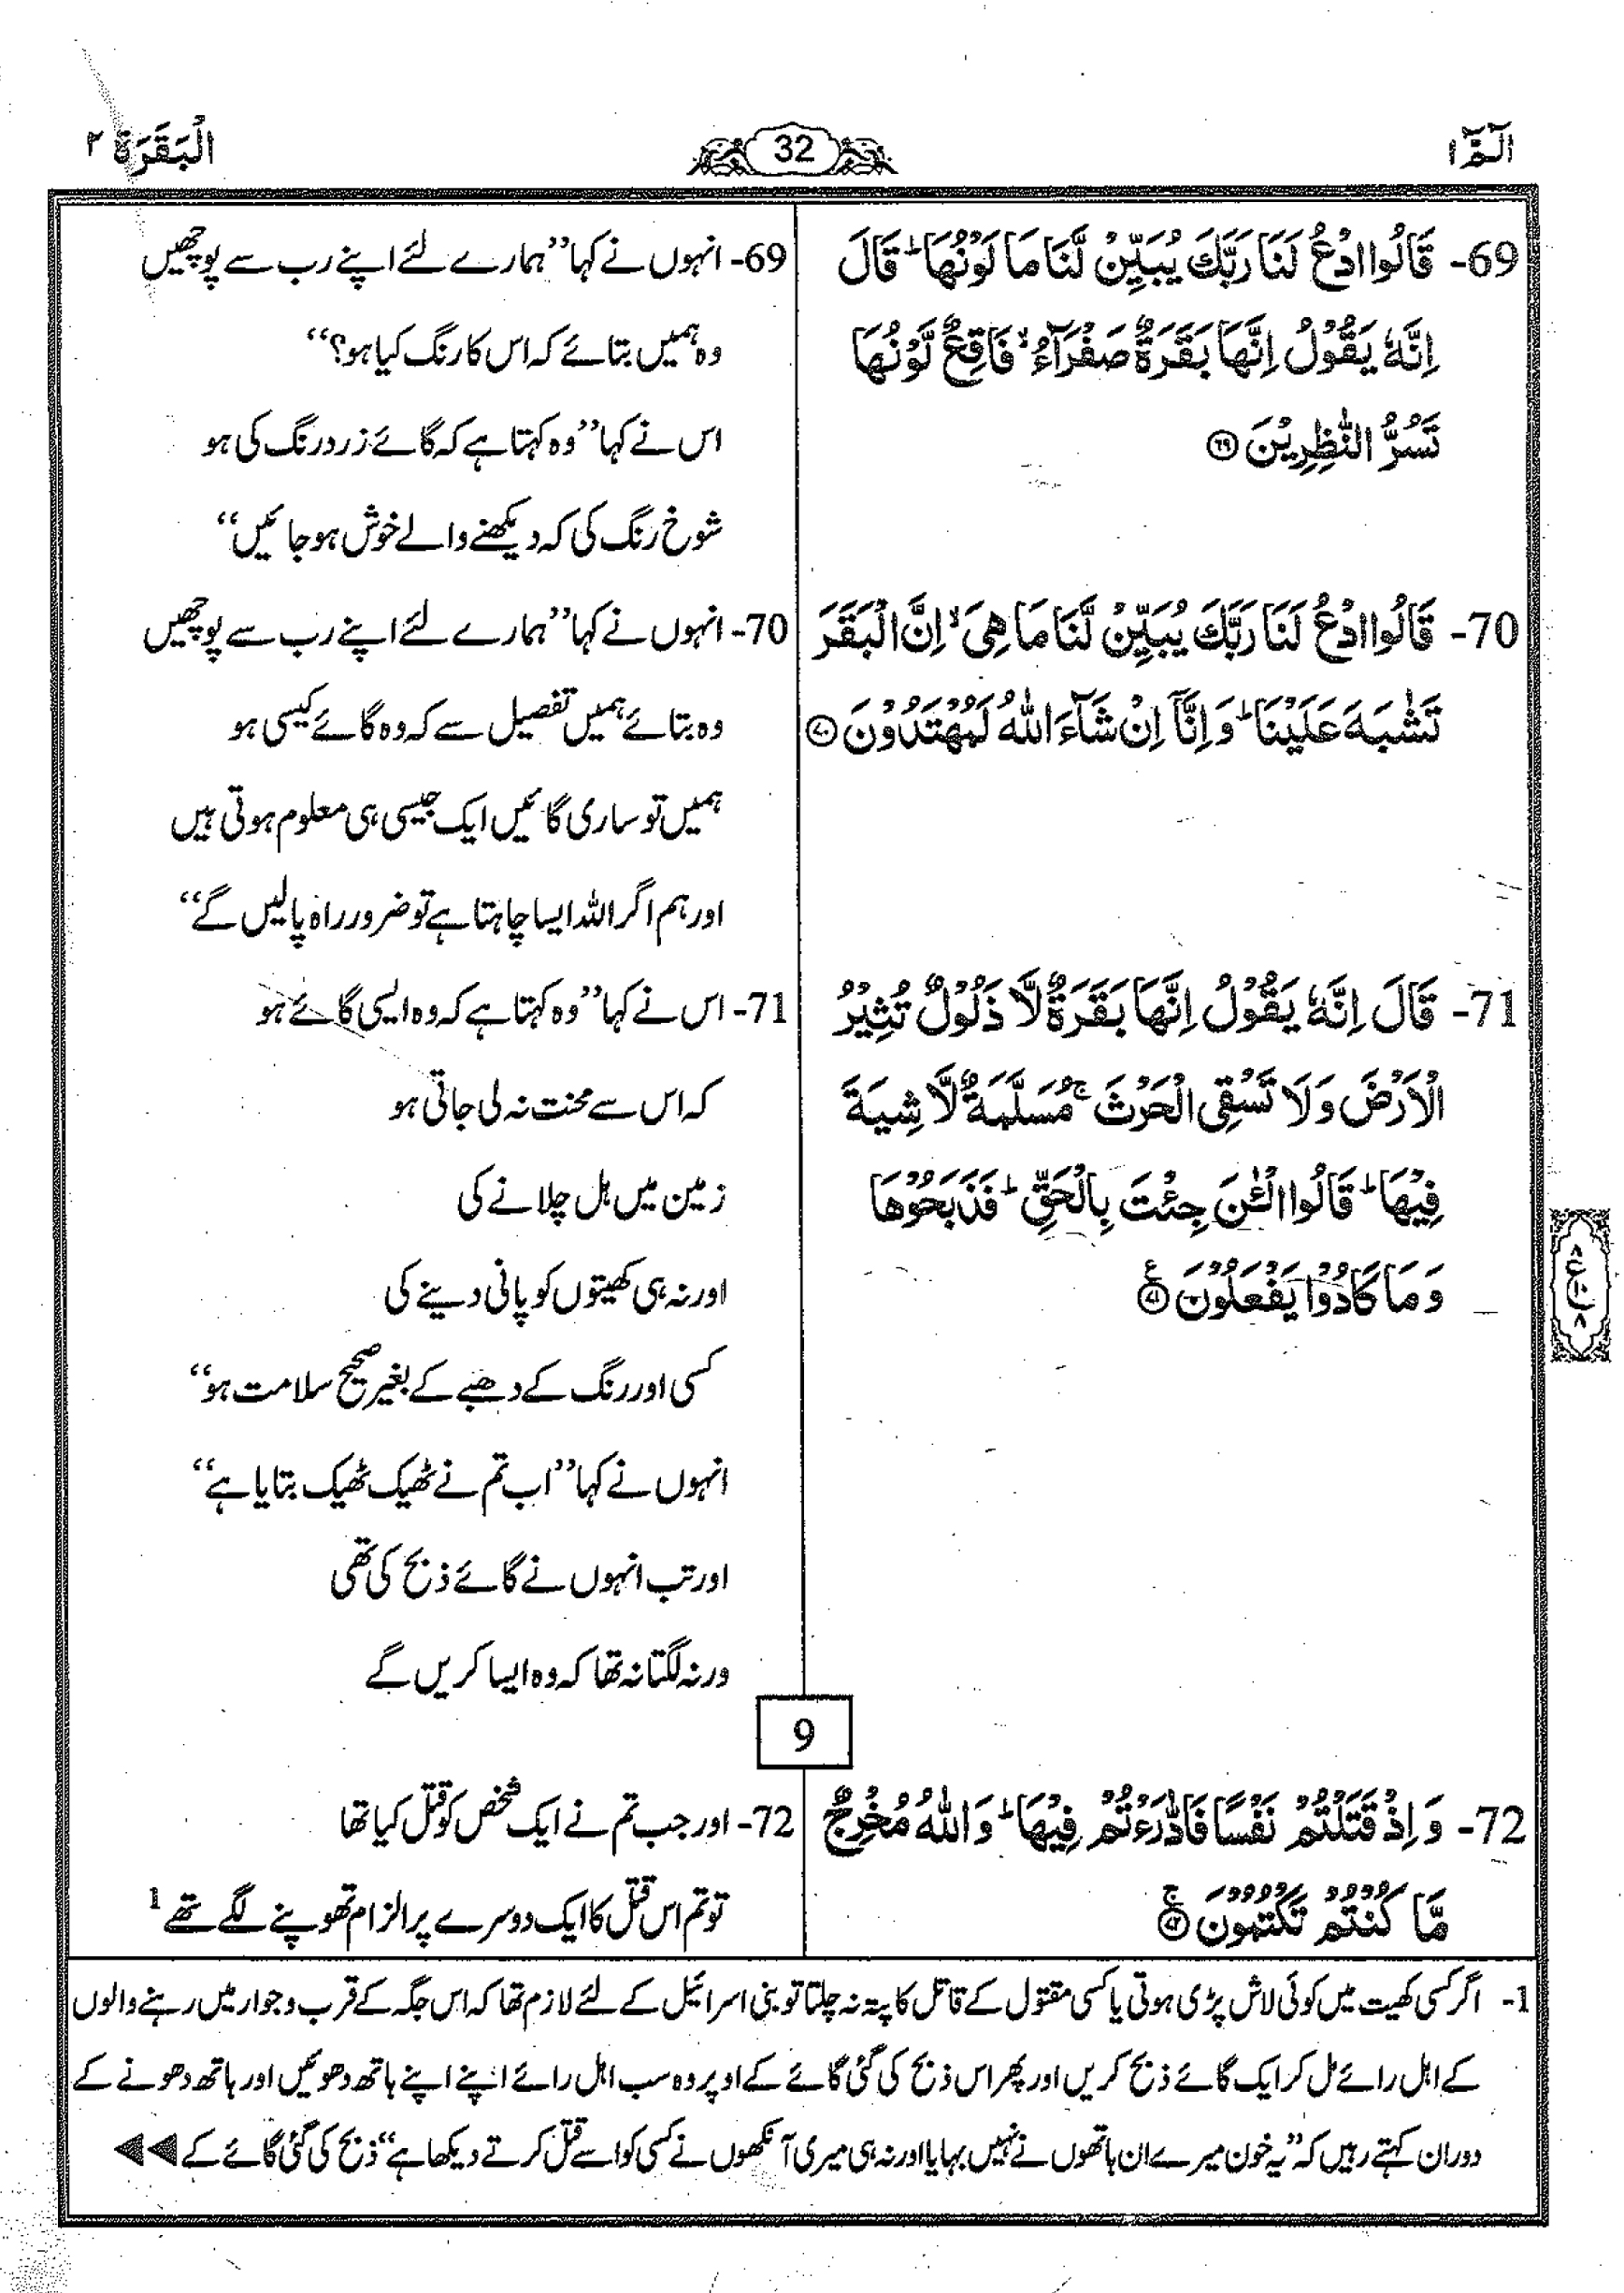 الٓمّٓ ۱
32
الْبَقَرَة ۲
69- قَالُوا ادْعُ لَنَا رَبَّكَ يُبَيِّنْ لَّنَا مَا لَوْنُهَا ؕ قَالَ
اِنَّهٗ يَقُوْلُ اِنَّهَا بَقَرَةٌ صَفْرَآءُ ۙ فَاقِعٌ لَّوْنُهَا
تَسُرُّ النّٰظِرِيْنَ ﴿۶۹﴾
70- قَالُوا ادْعُ لَنَا رَبَّكَ يُبَيِّنْ لَّنَا مَا هِيَ ۙ اِنَّ الْبَقَرَ
تَشٰبَهَ عَلَيْنَا ؕ وَ اِنَّاۤ اِنْ شَآءَ اللّٰهُ لَمُهْتَدُوْنَ ﴿۷۰﴾
71- قَالَ اِنَّهٗ يَقُوْلُ اِنَّهَا بَقَرَةٌ لَّا ذَلُوْلٌ تُثِيْرُ
الْاَرْضَ وَ لَا تَسْقِي الْحَرْثَ ۚ مُسَلَّمَةٌ لَّا شِيَةَ
فِيْهَا ؕ قَالُوا الْـٰٔنَ جِئْتَ بِالْحَقِّ ؕ فَذَبَحُوْهَا
وَ مَا كَادُوْا يَفْعَلُوْنَ ﴿۷۱﴾ ع
69- انہوں نے کہا ’’ہمارے لئے اپنے رب سے پوچھیں
وہ ہمیں بتائے کہ اس کا رنگ کیا ہو؟‘‘
اس نے کہا ’’وہ کہتا ہے کہ گائے زرد رنگ کی ہو
شوخ رنگ کی کہ دیکھنے والے خوش ہو جائیں‘‘
70- انہوں نے کہا ’’ہمارے لئے اپنے رب سے پوچھیں
وہ بتائے ہمیں تفصیل سے کہ وہ گائے کیسی ہو
ہمیں تو ساری گائیں ایک جیسی ہی معلوم ہوتی ہیں
اور ہم اگر اللہ ایسا چاہتا ہے تو ضرور راہ پالیں گے‘‘
71- اس نے کہا ’’وہ کہتا ہے کہ وہ ایسی گائے ہو
کہ اس سے محنت نہ لی جاتی ہو
زمین میں ہل چلانے کی
اور نہ ہی کھیتوں کو پانی دینے کی
کسی اور رنگ کے دھبے کے بغیر صحیح سلامت ہو‘‘
انہوں نے کہا ’’اب تم نے ٹھیک ٹھیک بتایا ہے‘‘
اور تب انہوں نے گائے ذبح کی تھی
ورنہ لگتا نہ تھا کہ وہ ایسا کریں گے
9
72- وَ اِذْ قَتَلْتُمْ نَفْسًا فَادّٰرَءْتُمْ فِيْهَا ؕ وَ اللّٰهُ مُخْرِجٌ
مَّا كُنْتُمْ تَكْتُمُوْنَ ﴿۷۲﴾ ۚ
72- اور جب تم نے ایک شخص کو قتل کیا تھا
تو تم اس قتل کا ایک دوسرے پر الزام تھوپنے لگے تھے 1
1- اگر کسی کھیت میں کوئی لاش پڑی ہوتی یا کسی مقتول کے قاتل کا پتہ نہ چلتا تو بنی اسرائیل کے لئے لازم تھا کہ اس جگہ کے قرب و جوار میں رہنے والوں
کے اہل رائے مل کر ایک گائے ذبح کریں اور پھر اس ذبح کی گئی گائے کے اوپر وہ سب اہل رائے اپنے اپنے ہاتھ دھوئیں اور ہاتھ دھونے کے
دوران کہتے رہیں کہ ’’یہ خون میرے ان ہاتھوں نے نہیں بہایا اور نہ ہی میری آنکھوں نے کسی کو اسے قتل کرتے دیکھا ہے‘‘ ذبح کی گئی گائے کے ◄◄